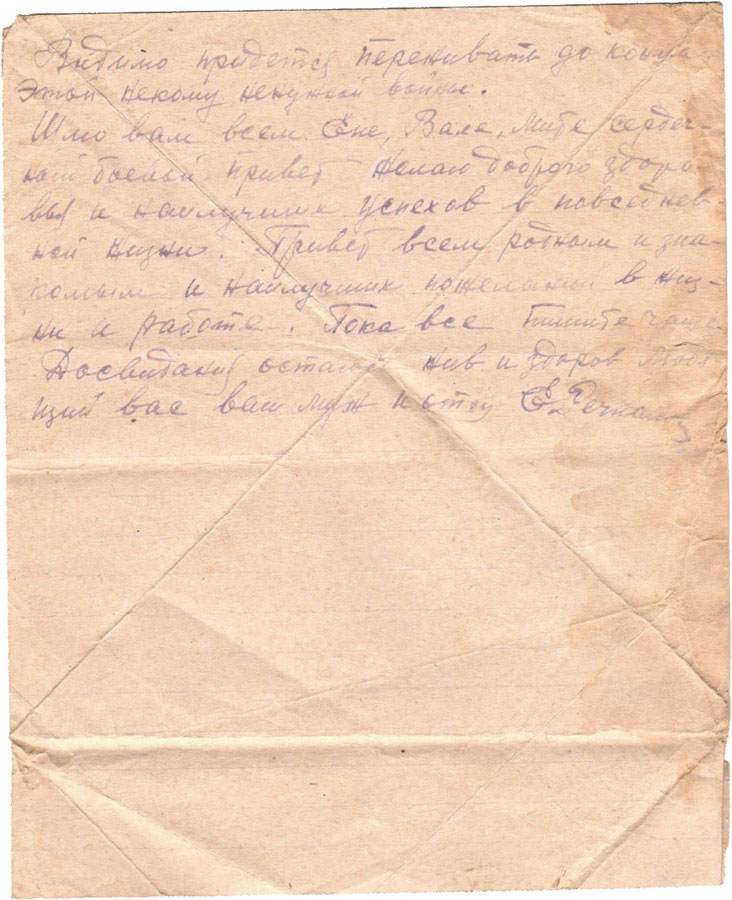 Видимо придется переживать до конца
этой некому ненужной войны.
Шлю вам всем Ене, Вале, Мите сердеч-
ный боевой привет желаю доброго здоро
вья и наилучших успехов в повседнев-
ной жизни. Привет всем родным и зна-
комым и наилучших пожеланий в жиз-
ни и работе. Пока все пишите чаще
Досвидания остаюсь жив и здоров любя
щий вас ваш муж и отец Е.